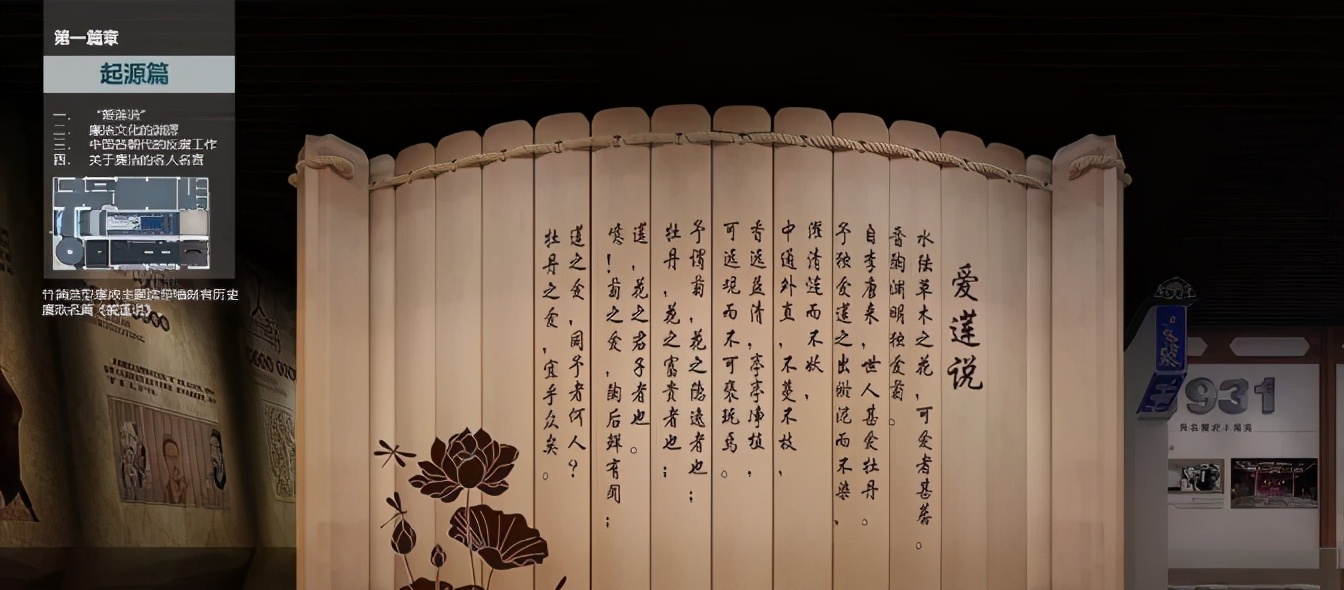 第一篇章
起源篇
一. "爱莲说"
二. 廉洁文化的渊源
三. 中国各朝代的反腐工作
四. 关于廉洁的名人名言
廉政名篇《爱莲说》
爱莲说
水陆草木之花，可爱者甚蕃。
晋陶渊明独爱菊。
自李唐来，世人甚爱牡丹。
予独爱莲之出淤泥而不染，
濯清涟而不妖，
中通外直，不蔓不枝，
香远益清，亭亭净植，
可远观而不可亵玩焉。
予谓菊，花之隐逸者也；
牡丹，花之富贵者也；
莲，花之君子者也。
噫！菊之爱，陶后鲜有闻；
莲之爱，同予者何人？
牡丹之爱，宜乎众矣。
1931